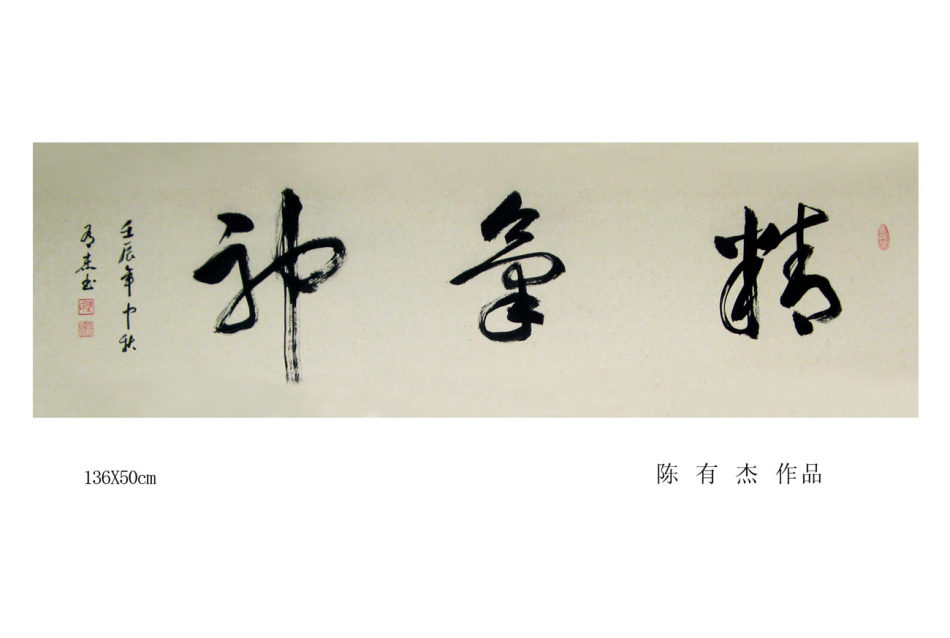 精氣神
壬辰年中秋
有杰书
136X50cm
陈有杰作品